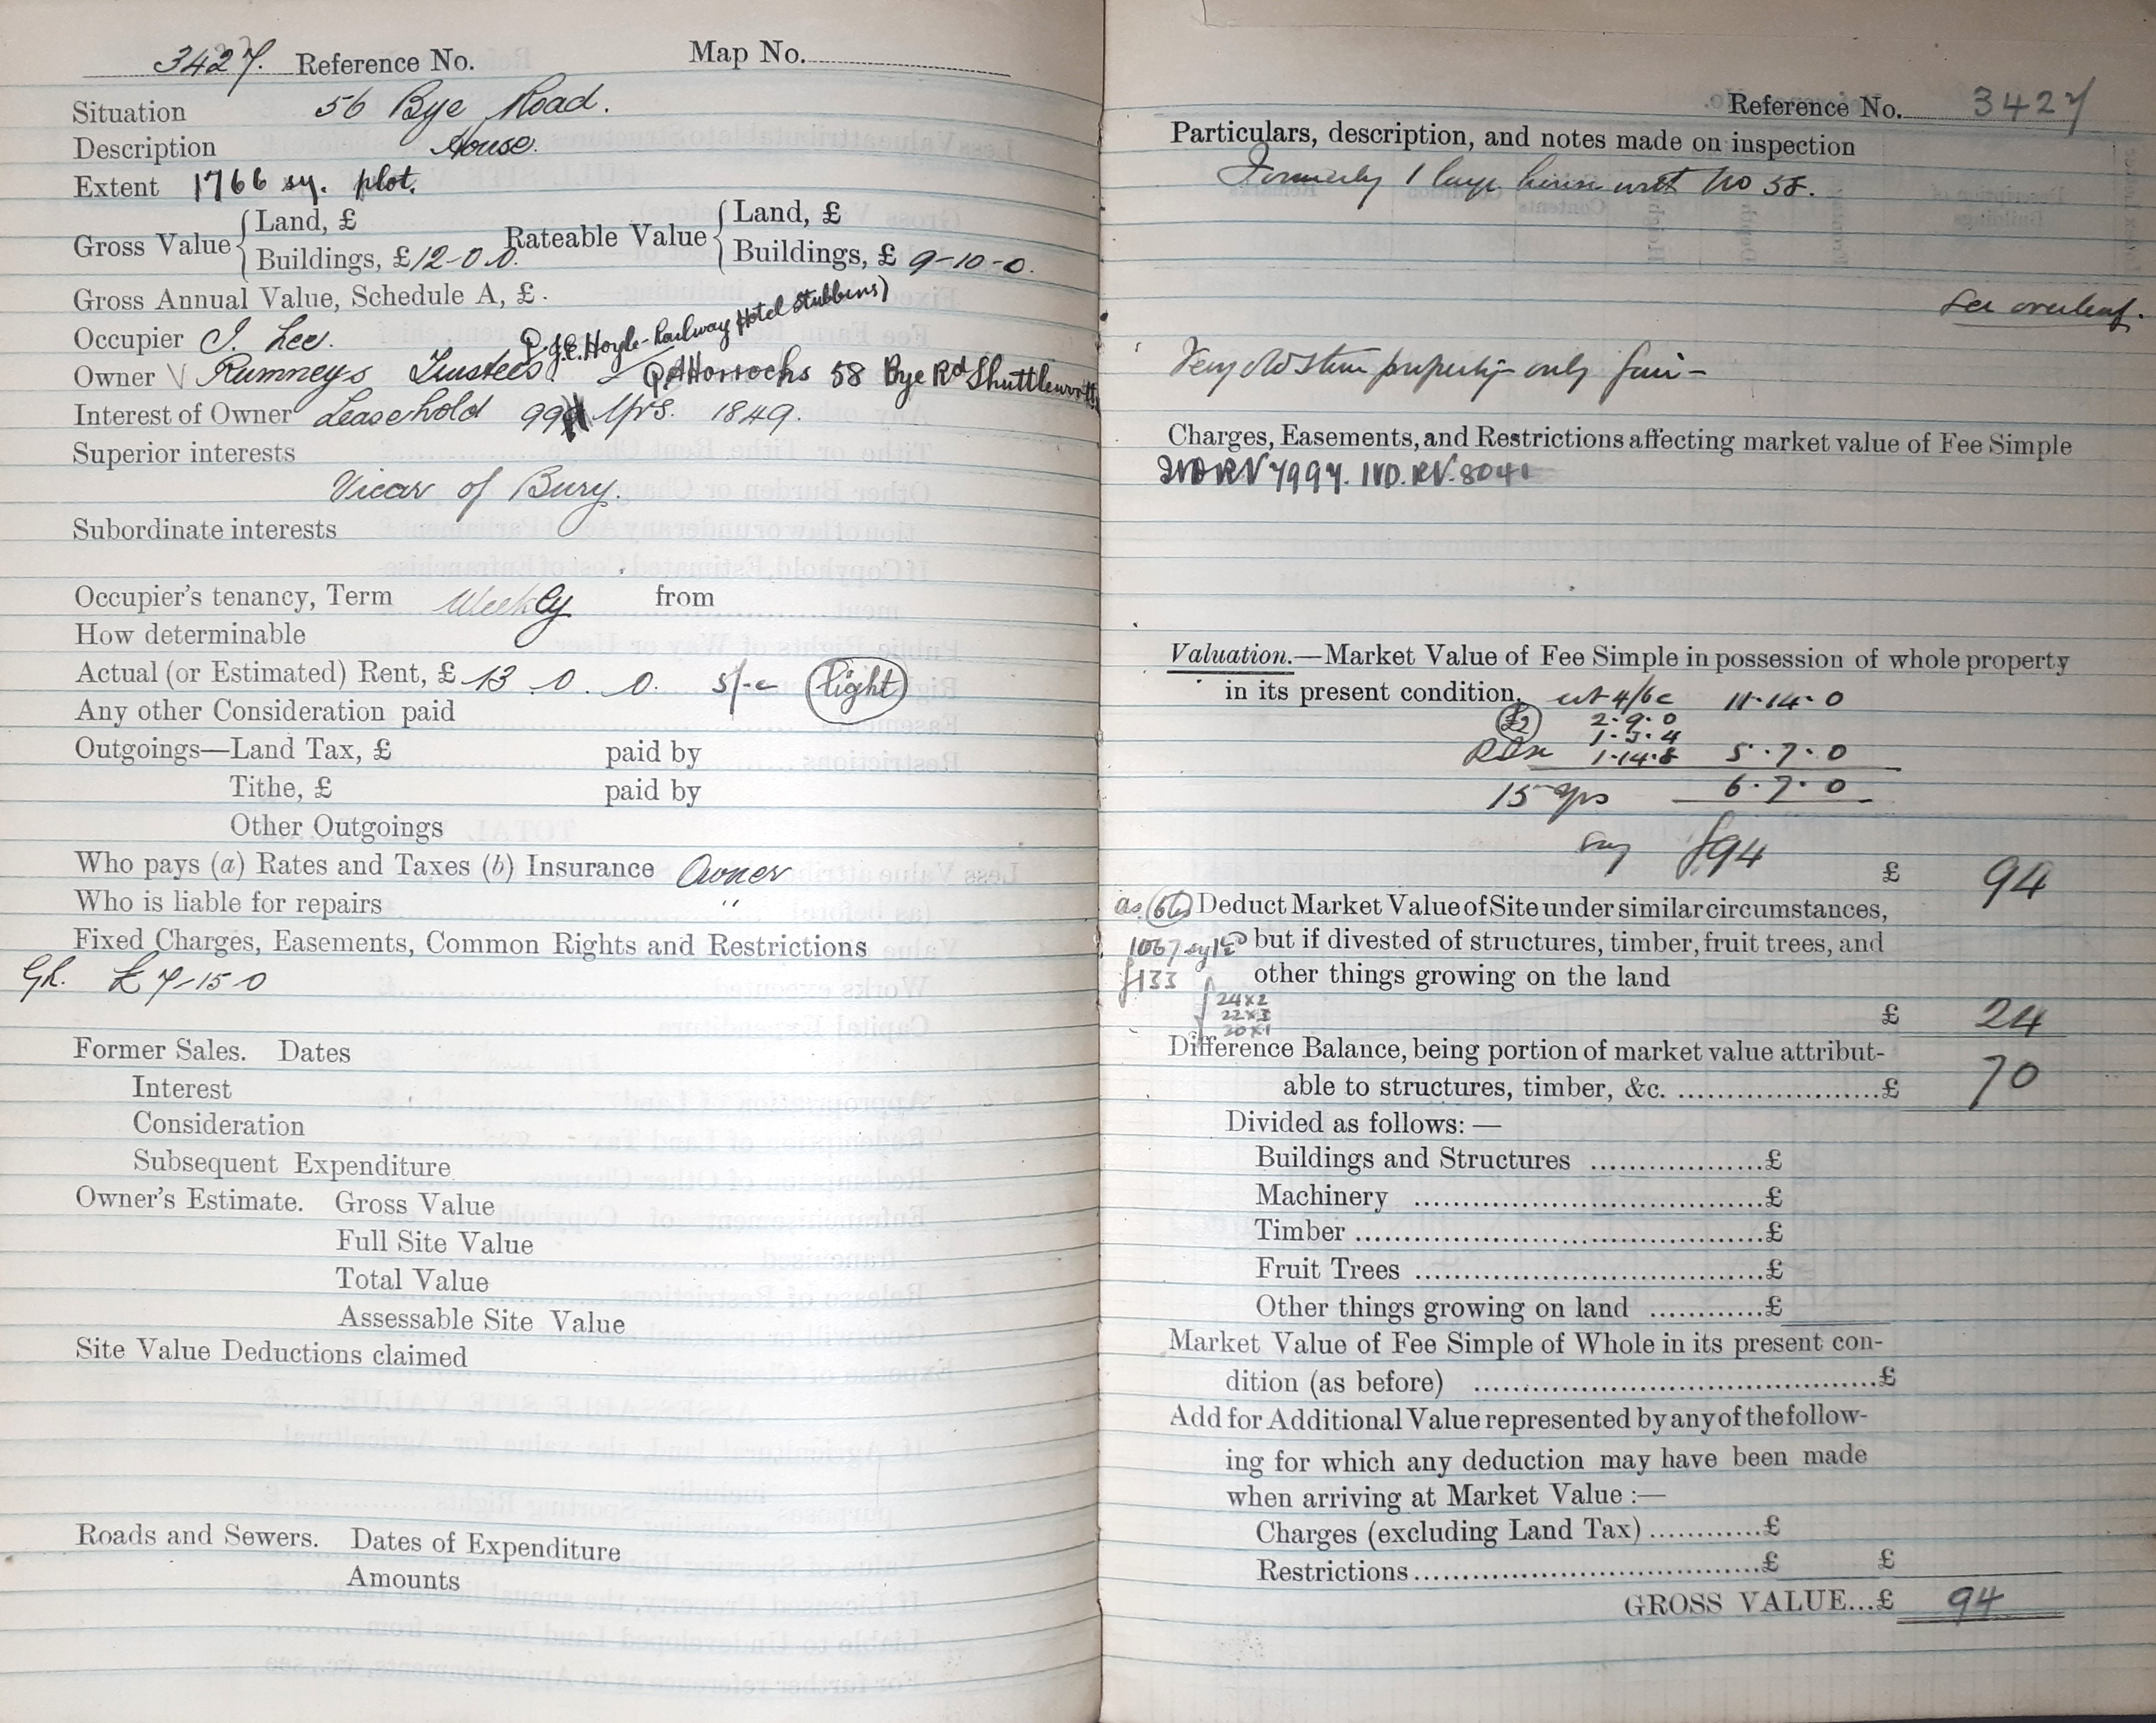 3427. Reference No. Map No.
Situation 56 Bye Road.
Description House.
Extent 1766 sy. plot.
Gross Value { Land, £ Rateable Value { Land, £
Buildings, £ 12-0-0. Buildings, £ 9-10-0.
Gross Annual Value, Schedule A, £.
Occupier J. Lee. J.E. Hoyle - Railway Hotel Stubbins)
Owner V Rumneys Trustees. Horrocks 58 Bye Rd Shuttleworth
Interest of Owner Leasehold 99 Yrs. 1849.
Superior interests
Vicar of Bury.
Subordinate interests
Occupier's tenancy, Term Weekly from
How determinable
Actual (or Estimated) Rent, £ 13 . 0 . 0. s/-c light
Any other Consideration paid
Outgoings—Land Tax, £ paid by
Tithe, £ paid by
Other Outgoings
Who pays (a) Rates and Taxes (b) Insurance Owner
Who is liable for repairs "
Fixed Charges, Easements, Common Rights and Restrictions
GR. £ 7-15-0
Former Sales. Dates
Interest
Consideration
Subsequent Expenditure
Owner's Estimate. Gross Value
Full Site Value
Total Value
Assessable Site Value
Site Value Deductions claimed
Roads and Sewers. Dates of Expenditure
Amounts
Reference No. 3427
Particulars, description, and notes made on inspection
Formerly 1 large house with No 58.
See overleaf.
Very old stone property - only fair -
Charges, Easements, and Restrictions affecting market value of Fee Simple
IND RV 7997. IND. RV. 8041
Valuation.—Market Value of Fee Simple in possession of whole property
in its present condition, at 4/6c 11.14.0
£2 2.9.0
1.3.4
1.14.8 5.7.0
15 yrs 6.7.0
say £94
£ 94
as Deduct Market Value of Site under similar circumstances,
1067 sy but if divested of structures, timber, fruit trees, and
£133 other things growing on the land
24x2
22x3
20x1
£ 24
Difference Balance, being portion of market value attribut-
able to structures, timber, &c. ......................£ 70
Divided as follows: —
Buildings and Structures ...................£
Machinery ......................................£
Timber............................................£
Fruit Trees ......................................£
Other things growing on land ............£
Market Value of Fee Simple of Whole in its present con-
dition (as before) ............................................£
Add for Additional Value represented by any of the follow-
ing for which any deduction may have been made
when arriving at Market Value :—
Charges (excluding Land Tax)............£
Restrictions......................................£ £
GROSS VALUE...£ 94